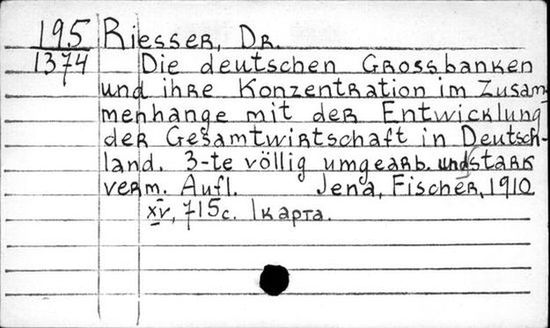 195 Riesser, Dr.
1374 Die deutschen Grossbanken
und ihre Konzentration im Zusam-
menhange mit der Entwicklung
der Gesamtwirtschaft in Deutsch-
land. 3-te völlig umgearb. und stark
verm. Aufl. Jena, Fischer, 1910
XV, 715 с. 1 карта.